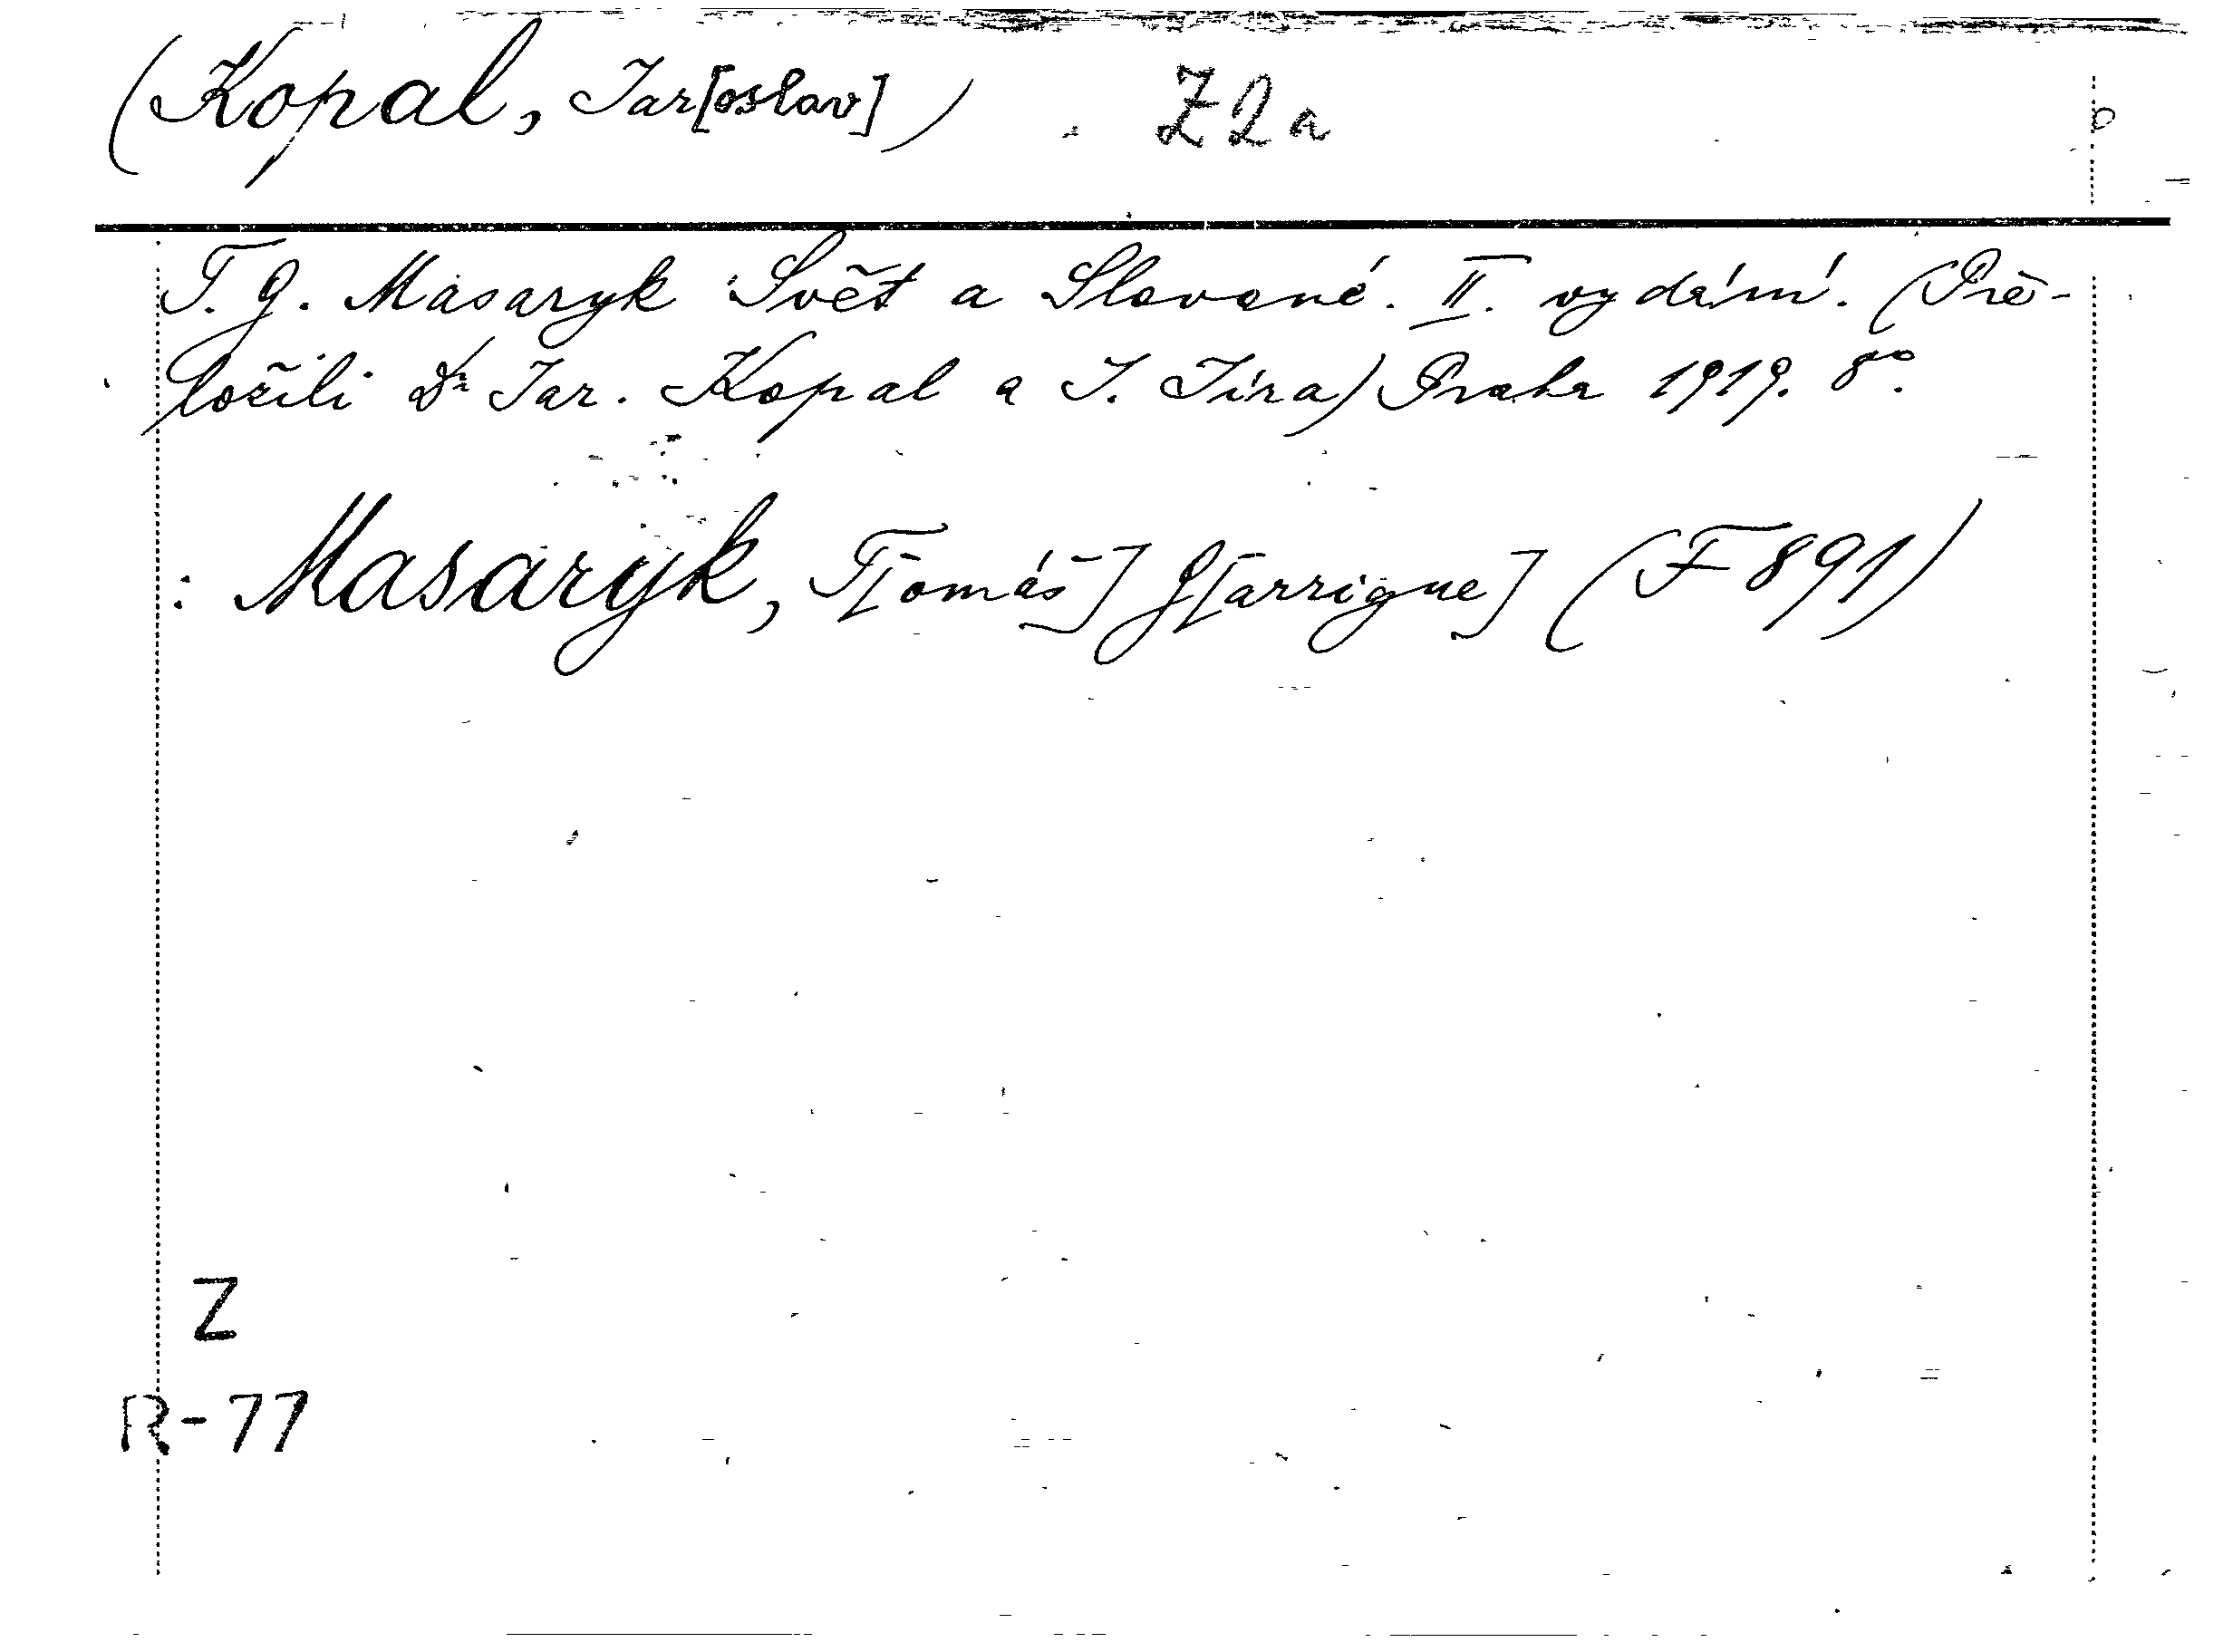 (Kopal, Jar[oslav]) Z2a
T. G. Masaryk: Svět a Slované. II. vydání. (Pře-
ložili Dr Jar. Kopal a J. Jíra) Praha 1919. 8°.
: Masaryk, T[omáš] G[arrigue] (F 891)
Z
R-77